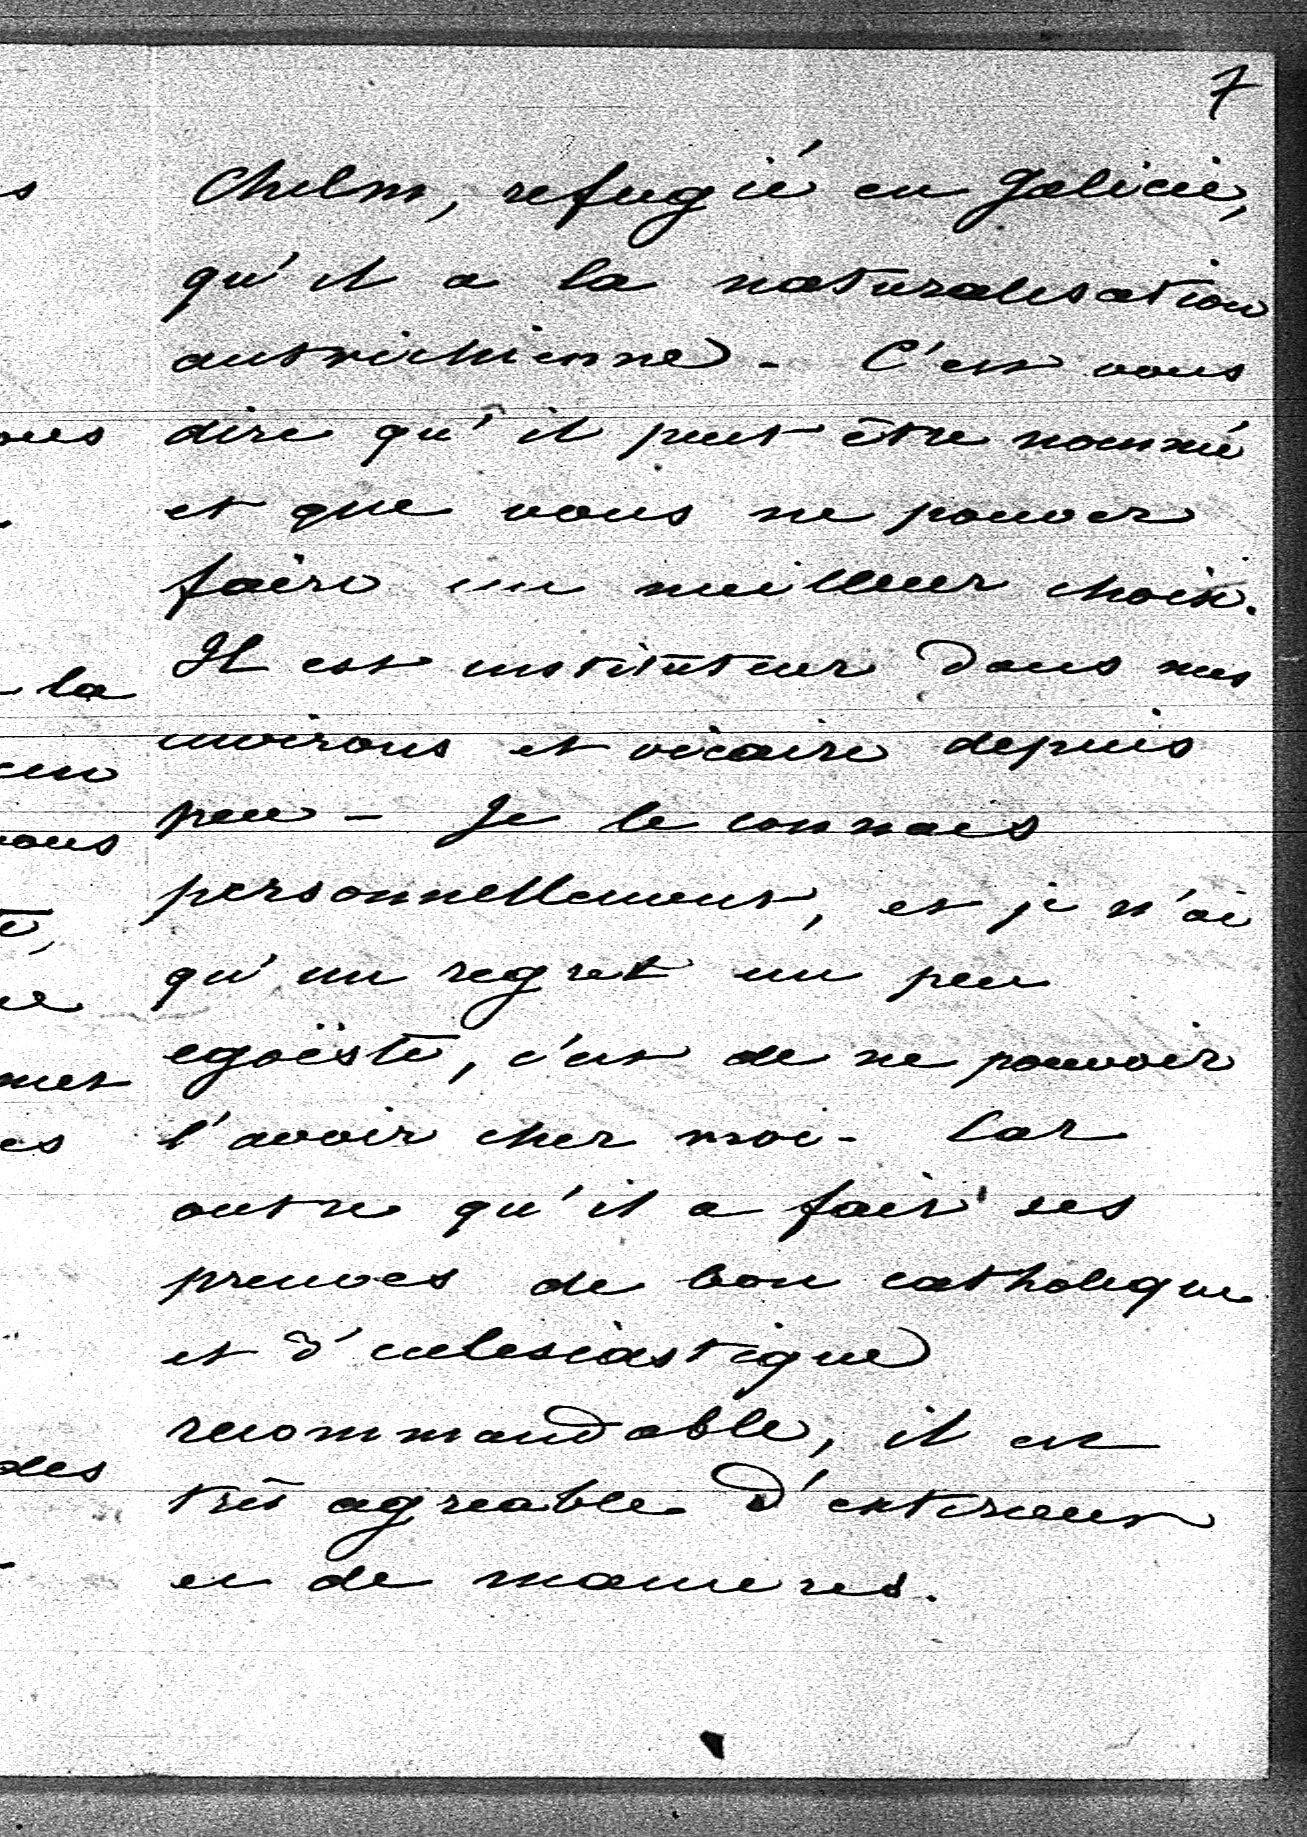 7
Chelm, refugié en Galicie,
qu'il a la naturalisation
autrichienne. C'est vous
dire qu'il peut être nommé
et que vous ne pouvez
faire un meilleur choix.
Il est instituteur dans mes
environs et vicaire depuis
peu - Je le connais
personnellement, et je n'ai
qu'un regret un peu
egoïste, c'est de ne pouvoir
l'avoir chez moi - Car
outre qu'il a fait ses
preuves de bon catholique
et d'ecclesiastique
recommandable, il est
très agreable d'exterieur
et de manieres.